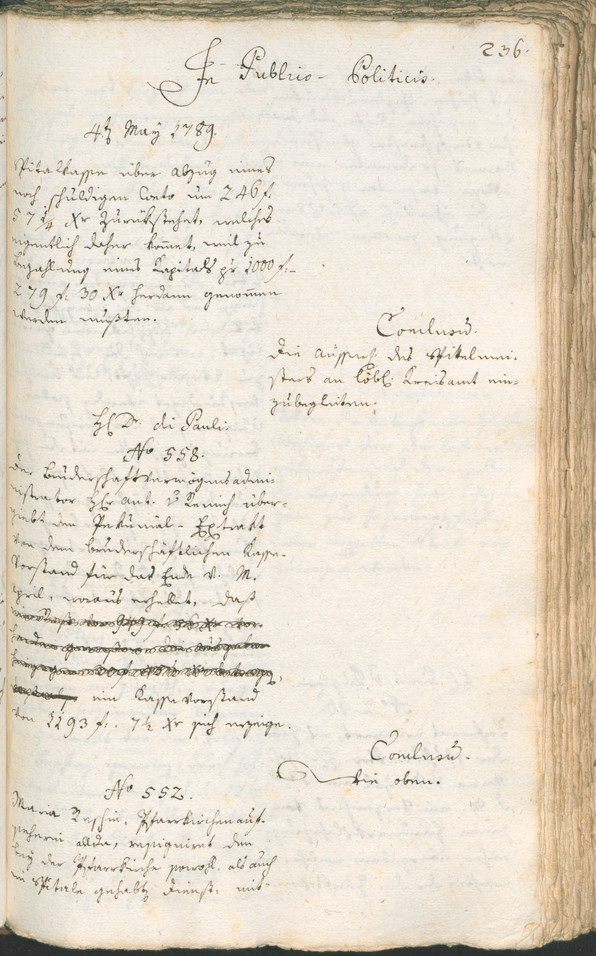 236.
In Publico-Politicis.
4t May 1789.
Spitalkasse über Abzug eines
noch schuldigen Conto um 246 f.
57 1/4 Xr zurükstehet, welches
eigentlich daher kommet, weil zu
Bezahlung eines Kapitals pr 1000 f:
279 f: 30 Xr herdann genommen
werden mußten.
Conclusum.
die Äusserg. des Spitalmei-
sters an löbl. Kreisamt ein-
zubegleiten.
H D. di Pauli.
No 558.
Der Bruderschaftvermögensadmi-
nistrator Hr Ant. v Remich über-
giebt den Pekunial-Extrakt
von dem bruderschäftlichen Kasse-
Vorstand für das Ende v. M.
April, woraus erhellet, daß
ein Kassevorstand
von 1193 f. 7 1/2 Xr sich erzeige.
Conclusum.
wie oben.
No 552.
Maria Reschin, Pfarrkirchenauf-
seherin allda, resigniret den
bey der Pfarrkirche sowohl, als auch
im Spitale gehabtn Dienst, mit